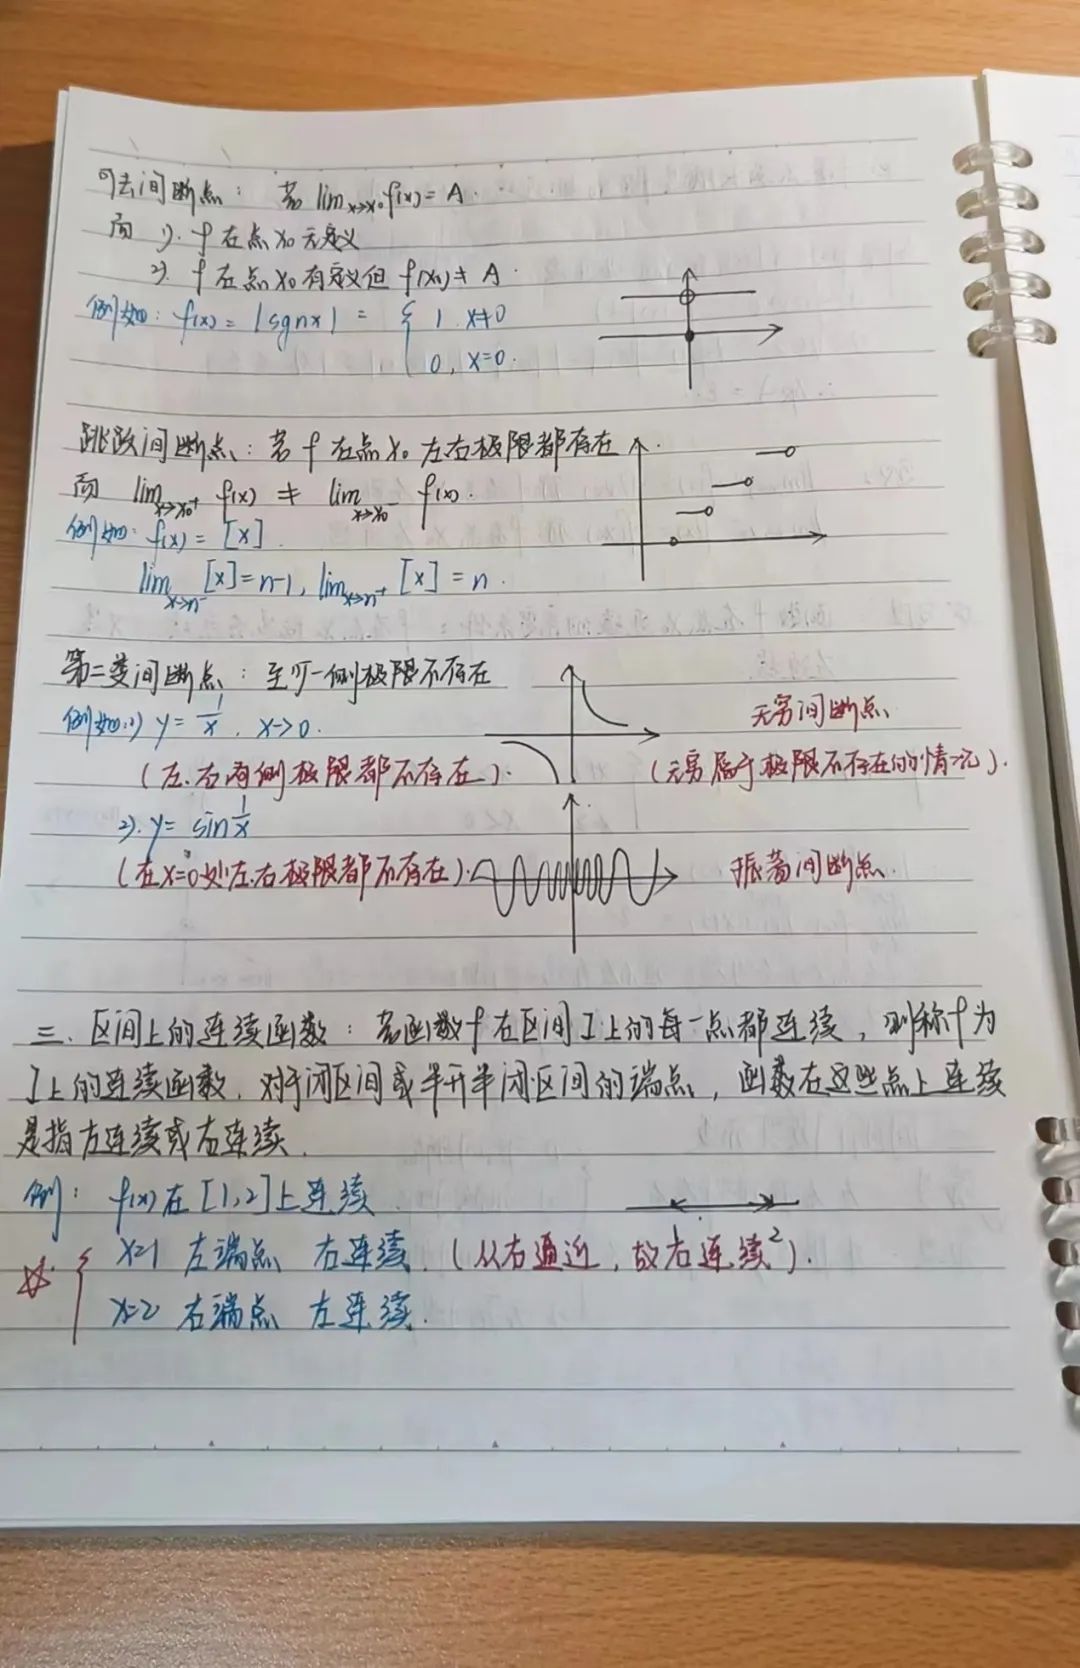 可去间断点: 若 lim x→x₀ f(x) = A.
而 1). f 在点 x₀ 无定义
2). f 在点 x₀ 有定义但 f(x₀) ≠ A.
例如: f(x) = |sgnx| = { 1, x≠0
0, x=0.
跳跃间断点: 若 f 在点 x₀ 左右极限都存在
而 lim x→x₀⁺ f(x) ≠ lim x→x₀⁻ f(x).
例如: f(x) = [x].
lim x→n⁻ [x] = n-1, lim x→n⁺ [x] = n.
第二类间断点: 至少一侧极限不存在
例如: 1) y = 1/x, x→0.
无穷间断点
(左.右两侧极限都不存在).
(无穷属于极限不存在的情况).
2). y = sin 1/x
(在x=0处左.右极限都不存在).
振荡间断点.
三. 区间上的连续函数: 若函数 f 在区间 I 上的每一点都连续, 则称 f 为
I 上的连续函数. 对于闭区间或半开半闭区间的端点, 函数在这些点上连续
是指左连续或右连续.
例: f(x) 在 [1,2] 上连续
x=1 左端点 右连续. (从右逼近, 故右连续²).
x=2 右端点 左连续.